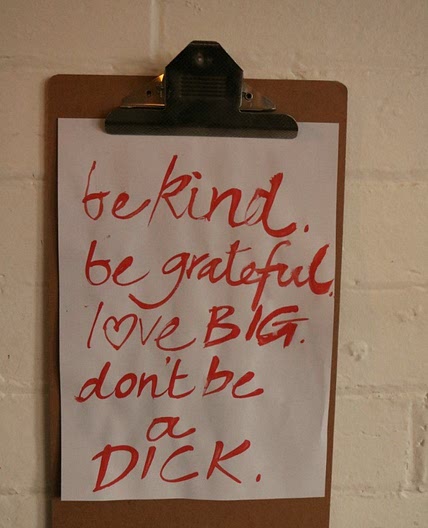 be kind.
be grateful.
l♡ve BIG.
don't be
a
DICK.